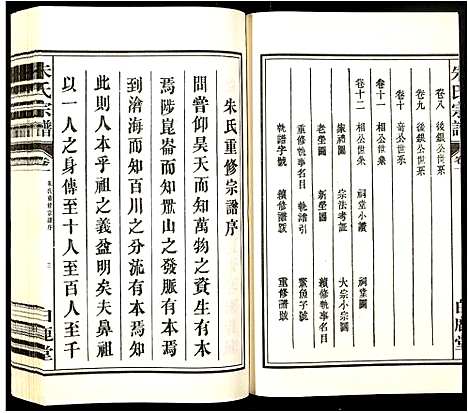 朱氏宗譜
卷八 後銀公世系
卷九 後銀公世系
卷十 奇公世系
卷十一 相公世系
卷十二 相公世系
朱祠圖 祠堂小議 祠堂圖
老塋圖 宗法考証 大宗小宗圖
新塋圖 續修執事名目
執譜引 鱉魚子號
重修執事名目 重修譜跋
執譜字號 續修譜跋
白鹿堂
朱氏重修宗譜序
間嘗仰昊天而知萬物之資生有本
焉陟崑崙而知眾山之發脈有本焉
到滄海而知百川之分流有本焉知
此則人本乎祖之義益明矣夫鼻祖
以一人之身傳至十人至百人至千
朱氏宗譜
卷一
朱氏重修宗譜序
白鹿堂